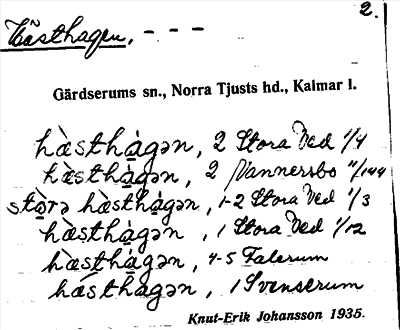 2.
Hästhagen, - - -
Gärdserums sn., Norra Tjusts hd., Kalmar l.
hàsthàgən, 2 Stora Ved 1/4
hæ̀sthàgən, 2 Vannersbo 11/144
stò̱rə hæ̀sthàgən, 1-2 Stora Ved 1/3
hæ̀sthàgən, 1 Stora Ved 1/12
hæ̀sthàgən, 4-5 Falerum
hàsthagən, 1 Svenserum
Knut-Erik Johansson 1935.